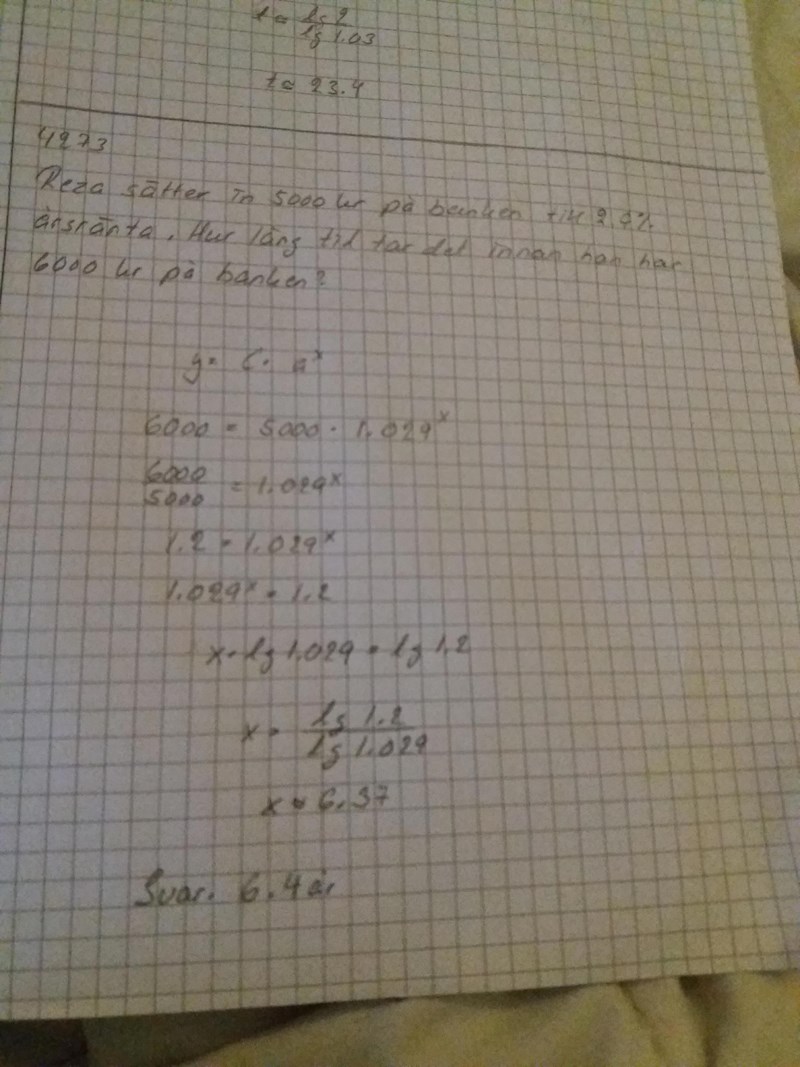 t = lg 2 / lg 1.03
t ≈ 23.4
4273
Reza sätter in 5000 kr på banken till 2.9%
årsränta. Hur lång tid tar det innan han har
6000 kr på banken?
y = C · a^x
6000 = 5000 · 1.029^x
6000 / 5000 = 1.029^x
1.2 = 1.029^x
1.029^x = 1.2
x · lg 1.029 = lg 1.2
x = lg 1.2 / lg 1.029
x ≈ 6.37
Svar. 6.4 år